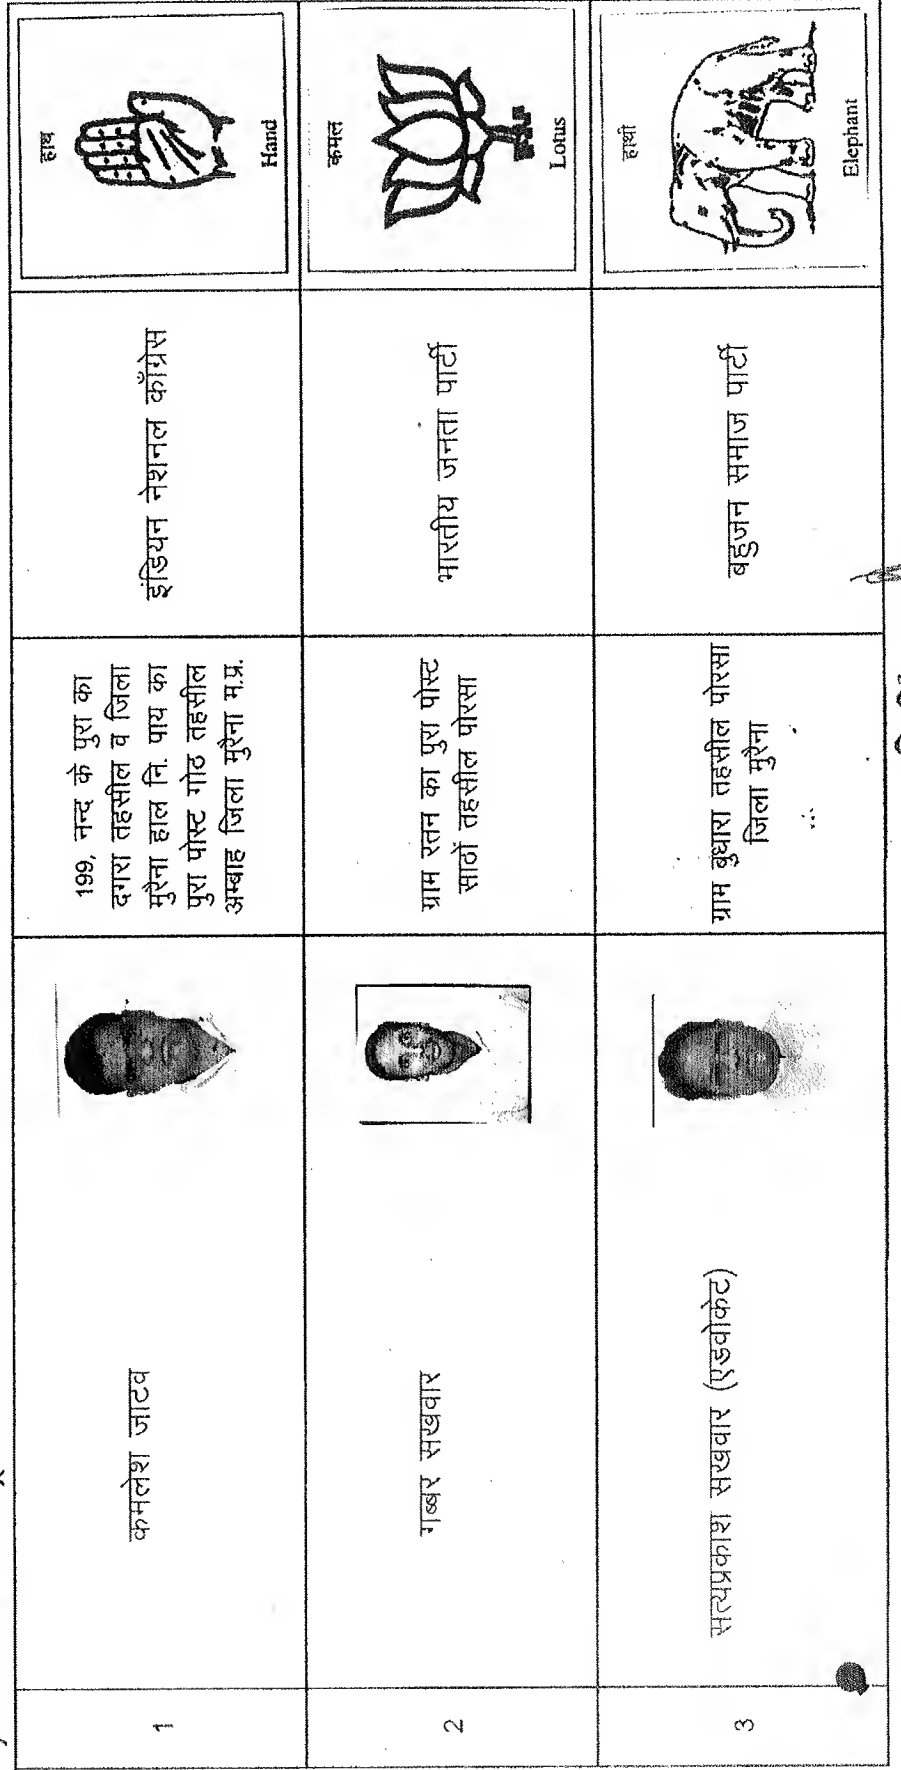 1
कमलेश जाटव
199, नन्द के पुरा का
दगरा तहसील व जिला
मुरैना हाल नि. पाय का
पुरा पोस्ट गोठ तहसील
अम्बाह जिला मुरैना म.प्र.
इंडियन नेशनल काँग्रेस
हाथ
Hand
2
गब्बर सखवार
ग्राम रतन का पुरा पोस्ट
साठों तहसील पोरसा
भारतीय जनता पार्टी
कमल
Lotus
3
सत्यप्रकाश सखवार (एडवोकेट)
ग्राम बुधारा तहसील पोरसा
जिला मुरैना
बहुजन समाज पार्टी
हाथी
Elephant